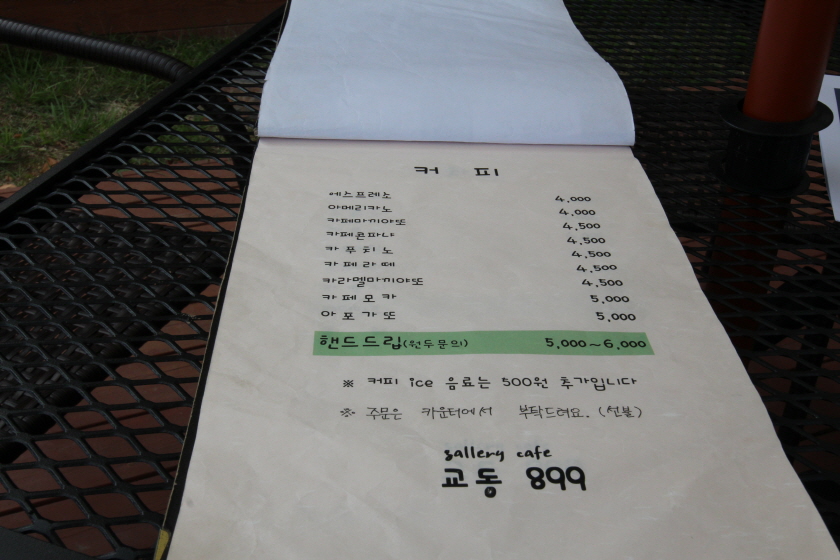 커 피
에스프레소 4,000
아메리카노 4,000
카페마끼야또 4,500
카페콘파냐 4,500
카푸치노 4,500
카페라떼 4,500
카라멜마끼야또 4,500
카페모카 5,000
아포가또 5,000
핸드드립(원두문의) 5,000~6,000
※ 커피 ice 음료는 500원 추가입니다
※ 주문은 카운터에서 부탁드려요. (선불)
gallery cafe
교동 899